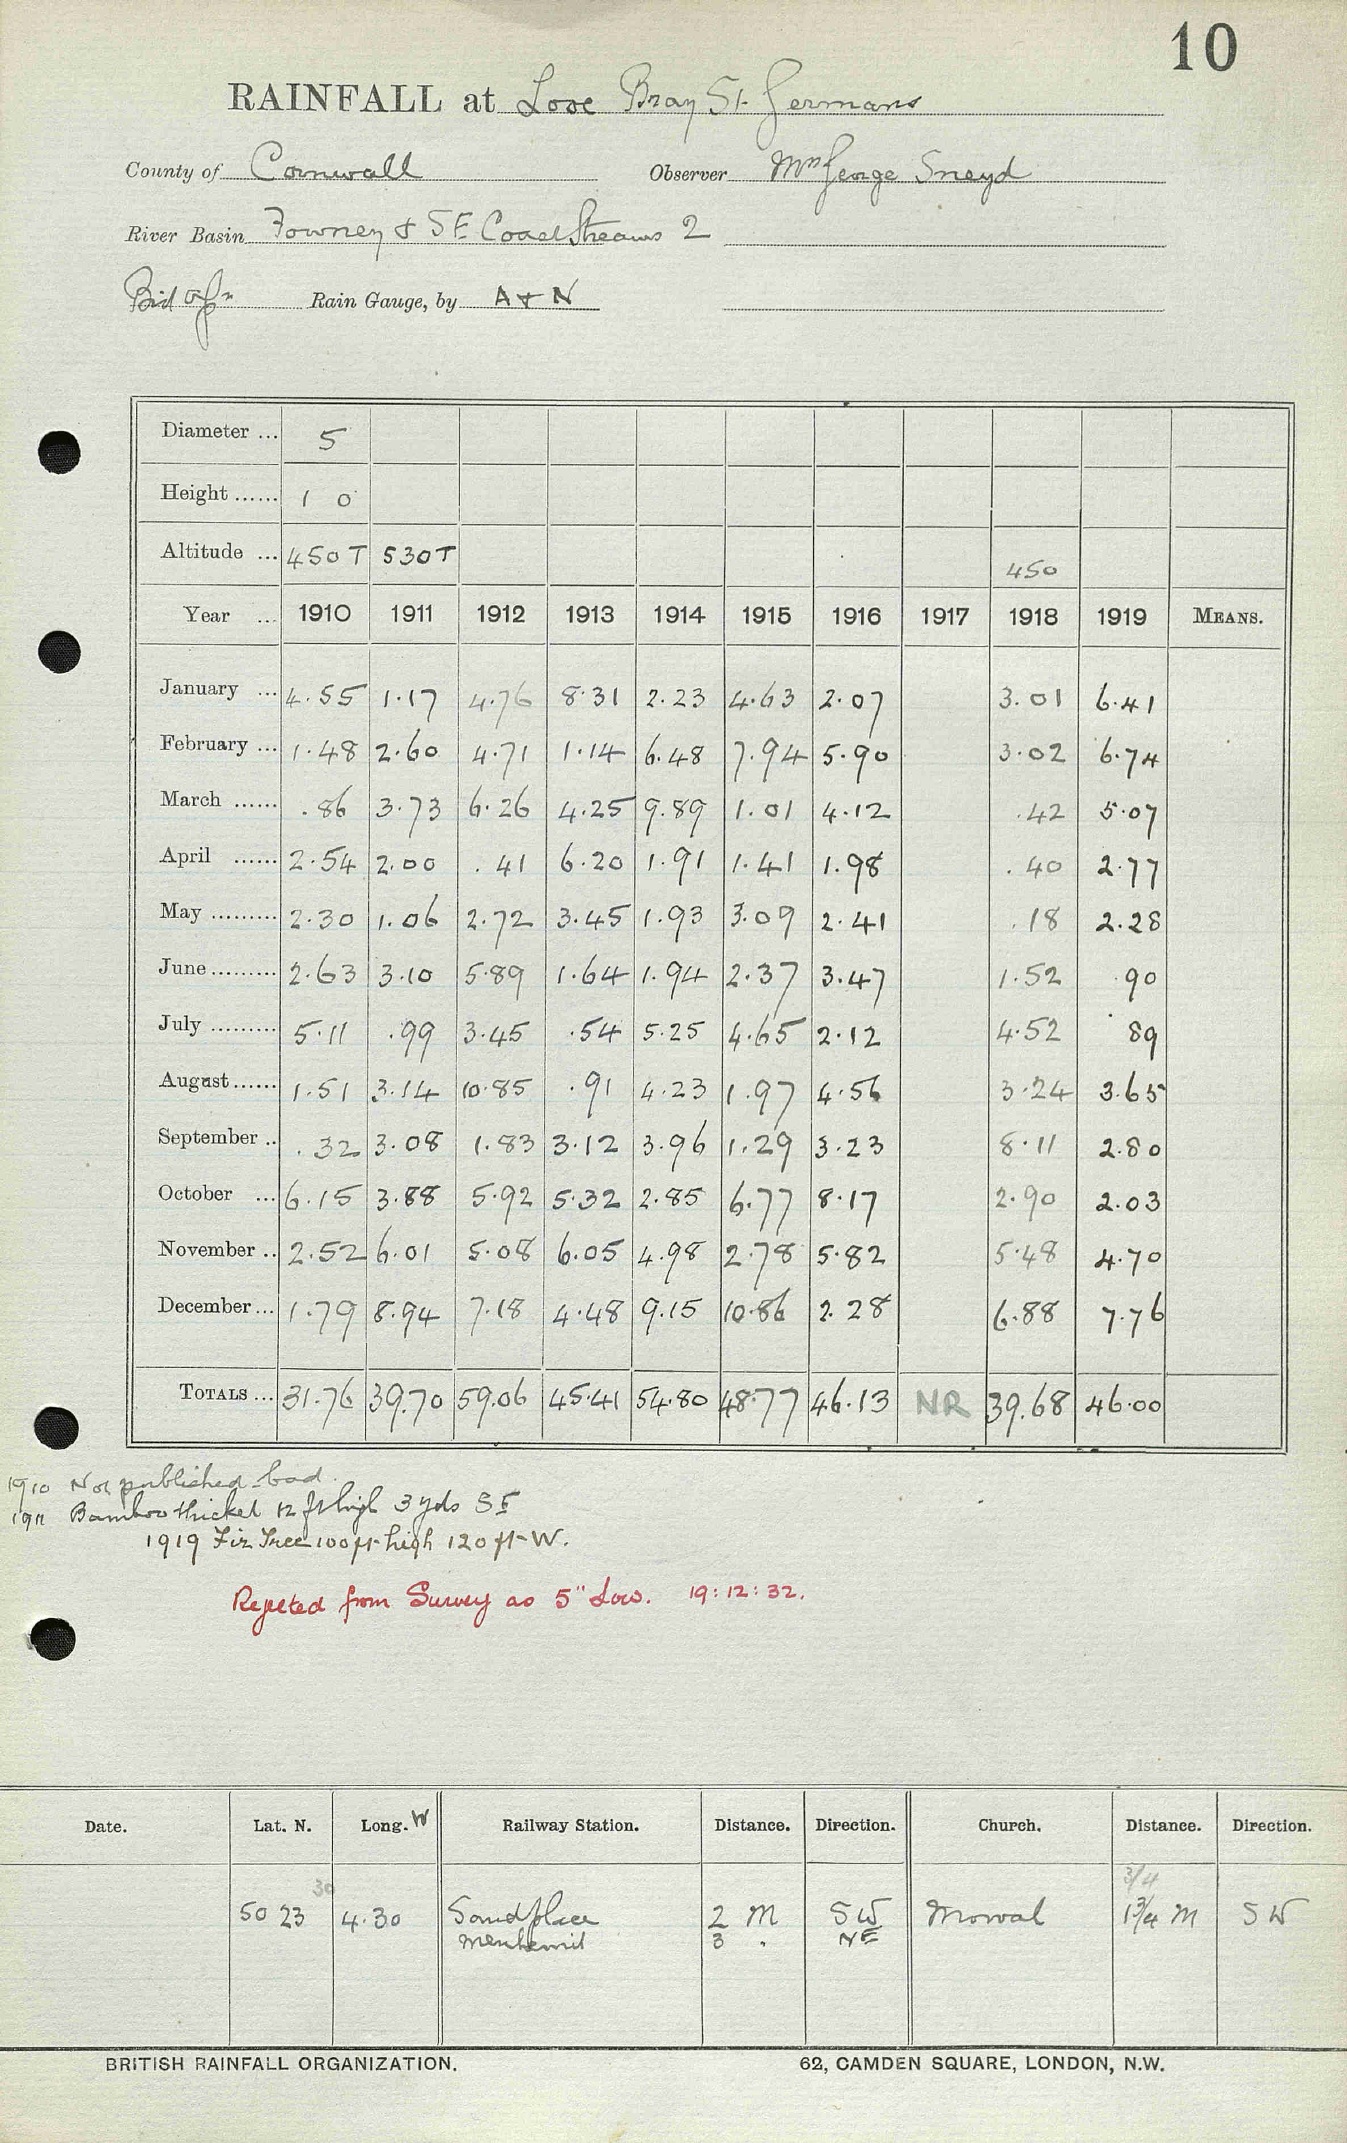 10
RAINFALL at Looe Bray St. Germans
County of Cornwall Observer Mrs George Sneyd
River Basin Fowney & S E Coast Streams 2
Rain Gauge, by A & N
Diameter ... 5
Height ...... 1 0
Altitude ... 450 T 530 T 450
Year ... 1910 1911 1912 1913 1914 1915 1916 1917 1918 1919 MEANS.
January ... 4.55 1.17 4.76 8.31 2.23 4.63 2.07 3.01 6.41
February ... 1.48 2.60 4.71 1.14 6.48 7.94 5.90 3.02 6.74
March ...... .86 3.73 6.26 4.25 9.89 1.01 4.12 .42 5.07
April ...... 2.54 2.00 .41 6.20 1.91 1.41 1.98 .40 2.77
May ......... 2.30 1.06 2.72 3.45 1.93 3.09 2.41 .18 2.28
June ......... 2.63 3.10 5.89 1.64 1.94 2.37 3.47 1.52 .90
July ......... 5.11 .99 3.45 .54 5.25 4.65 2.12 4.52 .89
August ...... 1.51 3.14 10.85 .91 4.23 1.97 4.56 3.24 3.65
September .. .32 3.08 1.83 3.12 3.96 1.29 3.23 8.11 2.80
October ... 6.15 3.88 5.92 5.32 2.85 6.77 8.17 2.90 2.03
November .. 2.52 6.01 5.08 6.05 4.98 2.78 5.82 5.48 4.70
December ... 1.79 8.94 7.18 4.48 9.15 10.86 2.28 6.88 7.76
TOTALS ... 31.76 39.70 59.06 45.41 54.80 48.77 46.13 NR 39.68 46.00
1910 Not published-bad
1911 Bamboo thicket 12 ft high 3 yds S E
1919 Fir Tree 100 ft high 120 ft W.
Rejected from Survey as 5" Low. 19:12:32.
Date. Lat. N. Long. W Railway Station. Distance. Direction. Church. Distance. Direction.
30 3/4
50 23 4.30 Sandplace 2 M SW Morval 1 3/4 M SW
Menheniot 3 " NE
BRITISH RAINFALL ORGANIZATION. 62, CAMDEN SQUARE, LONDON, N.W.